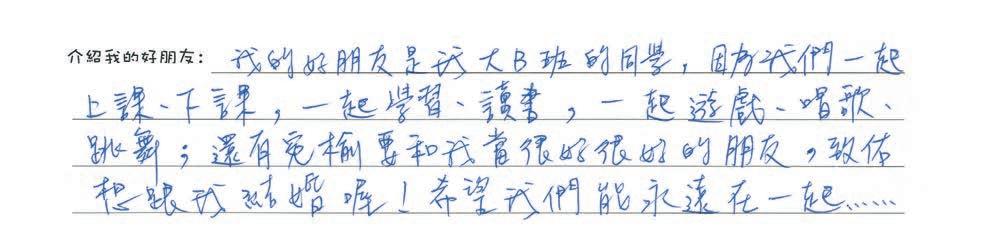 介紹我的好朋友：我的好朋友是我大B班的同學，因為我們一起
上課、下課，一起學習、讀書，一起遊戲、唱歌、
跳舞；還有宛榆要和我當很好很好的朋友，致佑
想跟我結婚喔！希望我們能永遠在一起……